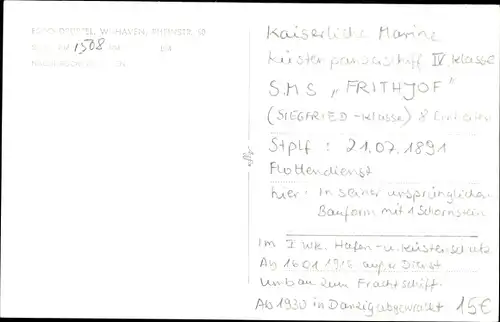 W'HAVEN, RHEINSTR.
1508
Kaiserliche Marine
Küstenpanzerschiff IV. Klasse
S.M.S „FRITHJOF"
(SIEGFRIED-Klasse) 8 Einheiten
Stplf : 21.07.1891
Flottendienst
hier: In seiner ursprünglichen
Bauform mit 1 Schornstein
Im I WK. Hafen-u. Küstenschutz
Ab 16.01 1916 außer Dienst
Umbau zum Frachtschiff.
Ab 1930 in Danzig abgewrackt 15€